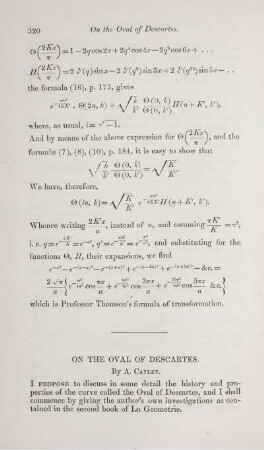 320 On the Oval of Descartes.
Θ(2Kx/π) = 1 − 2q cos 2x + 2q⁴ cos 4x − 2q⁹ cos 6x + ...
H(2Kx/π) = 2 ∜(q) sin x − 2 ∜(q⁹) sin 3x + 2 ∜(q²⁵) sin 5x − ..
the formula (16), p. 175, gives
where, as usual, i = √−1.
And by means of the above expression for Θ(2Kx/π), and the
formulæ (7), (8), (10), p. 184, it is easy to shew that
√(k/k') Θ(0, k)/Θ(0, k') = √(K/K').
We have, therefore,
Whence writing 2Kx/a, instead of u, and assuming πK'/K = a²,
and substituting for the
functions Θ, H, their expansions, we find
which is Professor Thomson's formula of transformation.
ON THE OVAL OF DESCARTES.
By A. Cayley.
I propose to discuss in some detail the history and pro-
perties of the curve called the Oval of Descartes, and I shall
commence by giving the author's own investigations as con-
tained in the second book of La Geometrie.